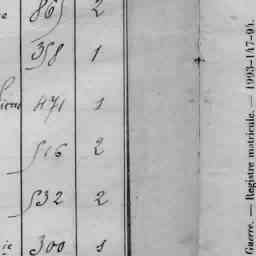 865 2
358 1
471 1
516 2
532 2
300 1
Guerre. — Registre matricule. — 1993-147-94.